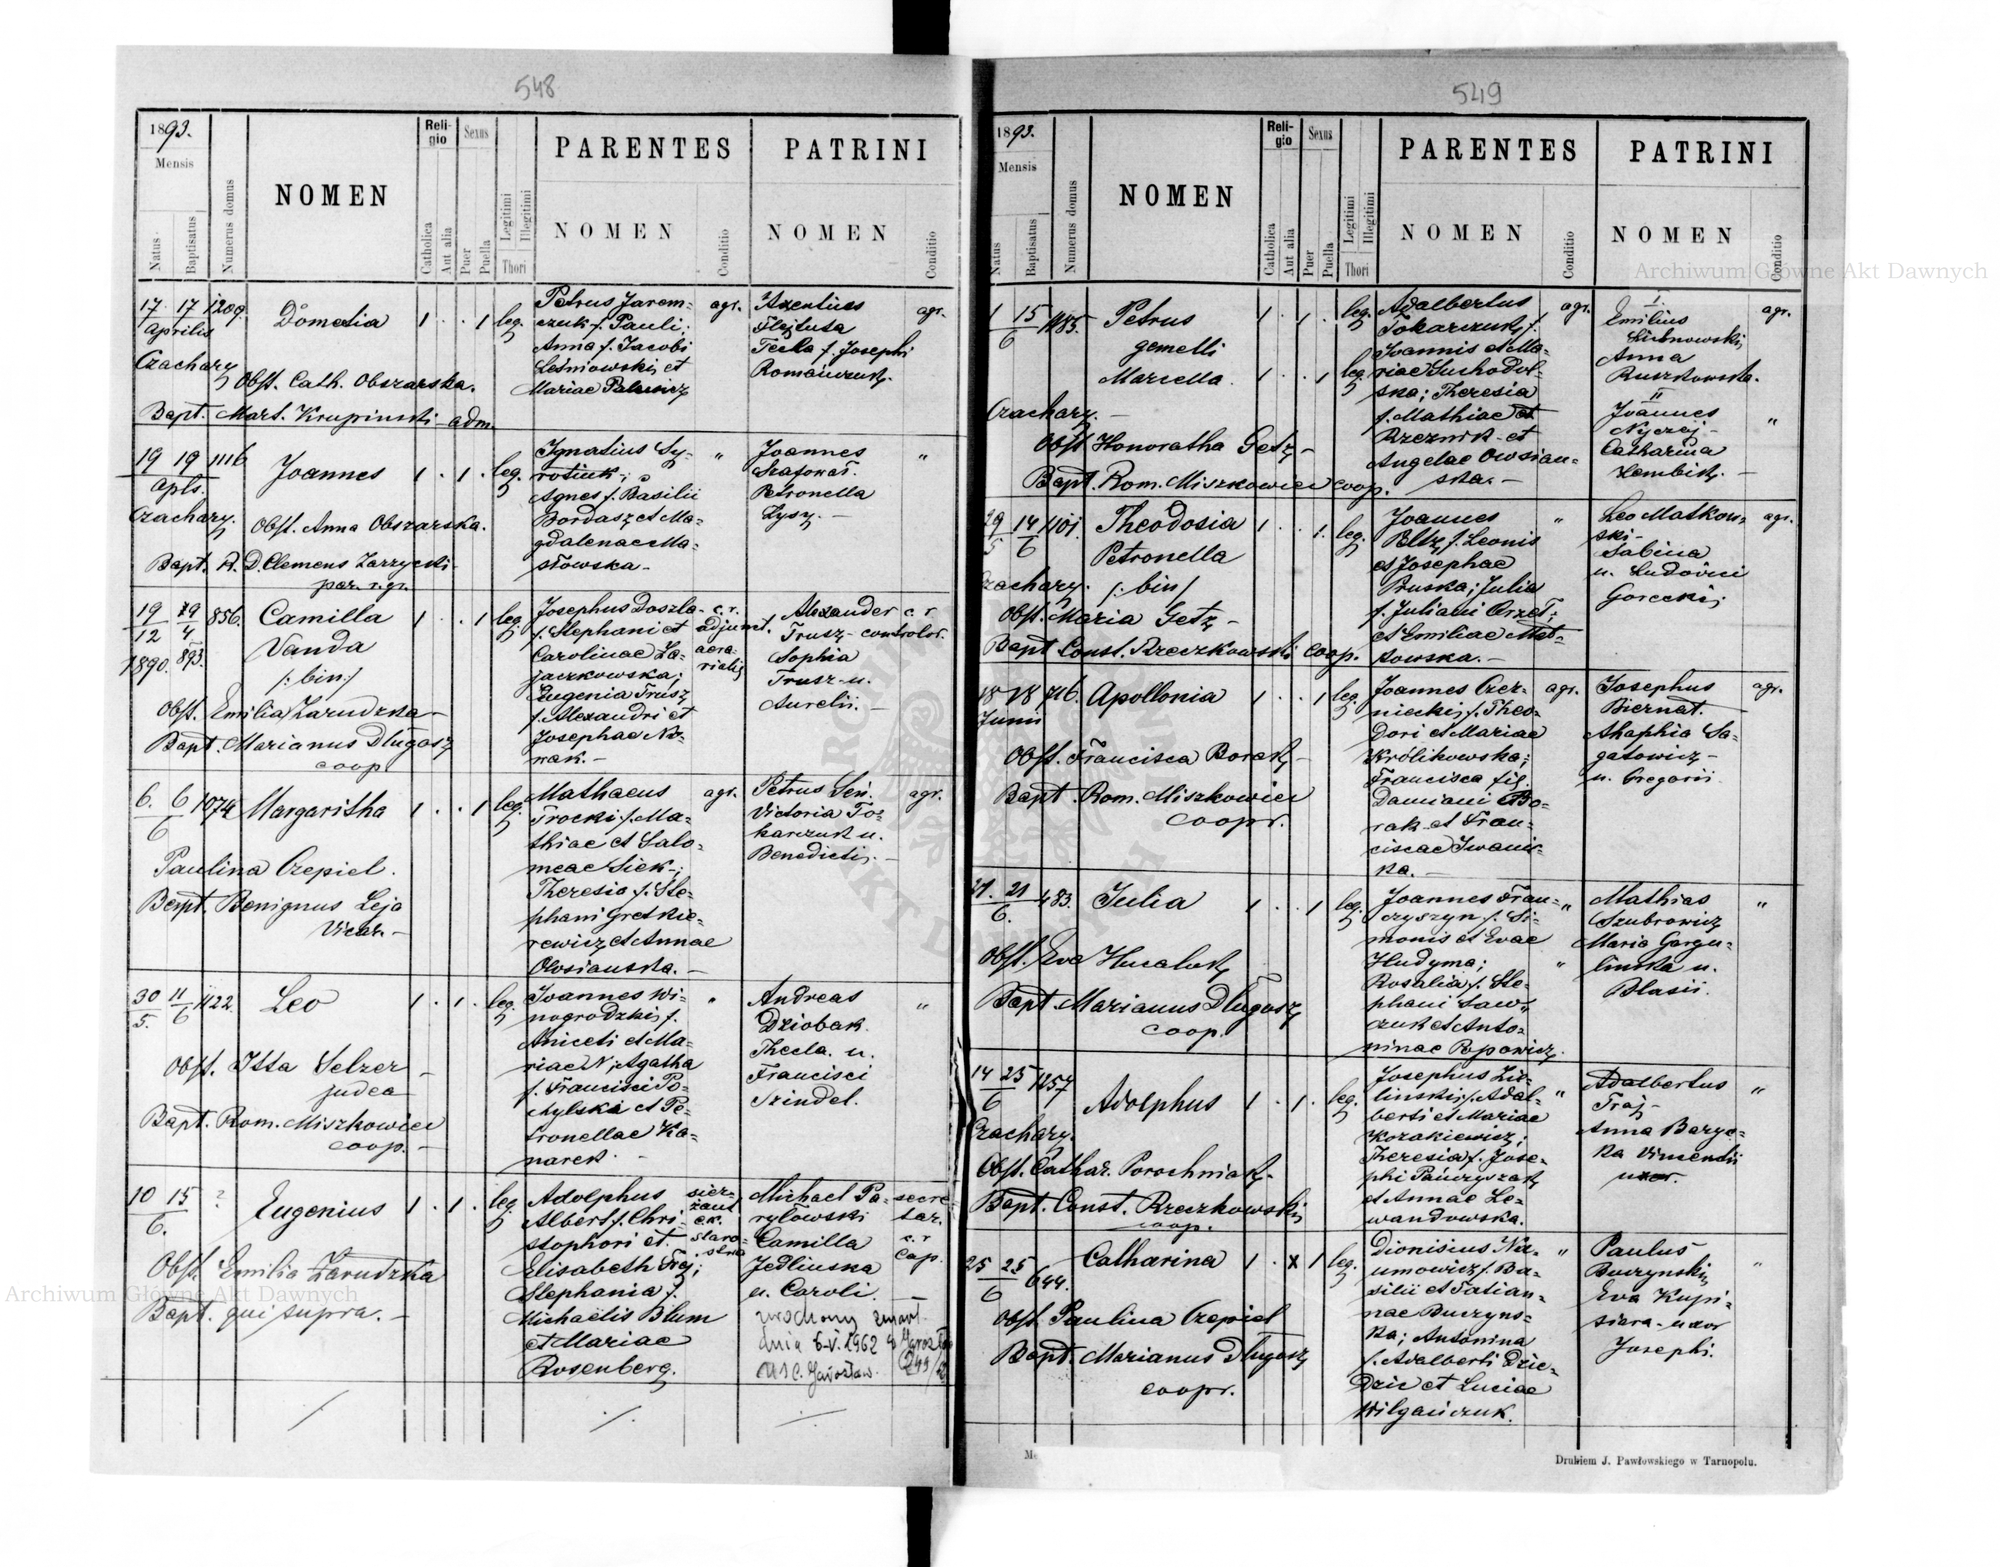 548
1893.
Mensis
Natus
Baptisatus
Numerus domus
NOMEN
Reli-
gio
Catholica
Aut alia
Sexus
Puer
Puella
Legitimi
Illegitimi
Thori
PARENTES
NOMEN
Conditio
PATRINI
NOMEN
Conditio
17 17 1209.
Aprilis
Domelia 1 . . 1 leg.
Czachary
Obst. Cath. Obszarska.
Bapt. Mart. Krupinski - adm.
Petrus Jarem-
czuk f. Pauli;
Anna f. Jacobi
Leśniowski et
Mariae
agr.
Flejtuta
Tecla f. Josephi
Romańczuk.
agr.
19 19 1116
Apls.
Joannes 1 . 1 . leg.
Czachary.
Obst. Anna Obszarska.
Bapt. A. D. Clemens Zarzycki
par. r. gr.
Ignatius Sy-
rotiuk;
Agnes f. Basilii
Bordasz et Ma-
gdalenae Ma-
słowska -
"
Joannes
Petronella
Łysy. -
"
19 19 856.
12 4
1890. 893.
Camilla 1 . . 1 leg.
Vanda
/: bin :/
Obst. Emilia Zarudzka -
Bapt. Marianus Długosz
coop
Josephus Doszla
f. Stephani et
Carolinae La-
jaczkowska;
Eugenia Trusz
f. Alexandri et
Josephae No-
wak. -
c. r.
adjunct.
aera-
rialis
Alexander
Trusz -
Sophia
Trusz u.
Aurelii. -
c. r
controlor.
6. 6 1074
6
Margaritha 1 . . 1 leg.
Paulina Czepiel.
Bapt. Benignus Leja
Vicar. -
Mathaeus
Trocki f. Ma-
thiae et Salo-
meae Siek -;
Theresia f. Ste-
phani Gretkie-
rewicz et Annae
Owsianska. -
agr.
Petrus Sen.
Victoria To-
karczuk u.
Benedicti. -
agr.
30 11 1122.
5. 6
Leo 1 . 1 . leg.
Obst. Itta Selzer -
judea
Bapt. Rom. Miszkowicz
coop. -
Joannes Wi-
nogrodzki f.
Aniceti et Ma-
riae N; Agatha
f. Francisci Po-
et Pe-
tronellae Ka-
narek. -
"
Andreas
Dziobak.
Thecla u.
Francisci
Szindel.
"
10 15 ?
6.
Eugenius 1 . 1 . leg.
Obst. Emilia Zarudzka
Bapt. qui supra. -
Adolphus
Albert f. Chri-
stophori et
Elisabeth Frej;
Stephania f.
Michaelis Blum
et Mariae
Rosenberg.
sier-
żant
c. k.
staro-
stwa
Michael Pa-
ryłowski
Camilla
Jedlinska
u. Caroli.
secre
tar.
c. r
cap.
zmarł
dnia 6-V.1962
USC. Jarosław.
549
1893.
Mensis
Natus
Baptisatus
Numerus domus
NOMEN
Reli-
gio
Catholica
Aut alia
Sexus
Puer
Puella
Legitimi
Illegitimi
Thori
PARENTES
NOMEN
Conditio
PATRINI
NOMEN
Conditio
1 15 1185.
6
Petrus 1 . 1 . leg.
gemelli
Marcella. 1 . . 1 leg.
Czachary. -
Obst Honoratha Getz -
Bapt. Rom. Miszkowicz coop.
Adalbertus
Tokarczuk f.
Joannis et Ma-
riae Suchodol-
ska; Theresia
f. Mathiae
Rzeznik et
Angelae Owsian-
ska. -
agr.
I.
Emilius
Anna
Ruszkowska.
II
Joannes
Nyczaj -
Catharina
Zembik. -
agr.
"
29 14 1101.
5 6
Theodosia 1 . . 1. leg.
Petronella
Czachary. /: bin /
Obst. Maria Getz -
Bapt Const. Rzeczkowski coop.
Joannes
Bltz f. Leonis
et Josephae
Pruska; Julia
f. Juliani Orzeł;
et Emiliae Mat-
kowska. -
"
Leo Matkow-
ski -
Sabina
u. Ludovici
Gorecki;
agr.
18 18 716.
Junii
Apollonia 1 . . 1 leg.
Obst. Francisca Borak -
Bapt. Rom. Miszkowicz
coopr.
Joannes Czer-
niecki f. Theo-
dori et Mariae
Królikowska;
Francisca fil.
Damiani Bo-
rak et Fran-
ciscae Iwanic-
ka. -
agr.
Josephus
Biernat.
Ahaphia Sa-
gatowicz -
u. Gregorii
agr.
21. 21 483.
6.
Julia 1 . . 1 leg.
Obst. Eva Hucaluk
Bapt Marianus Długosz
coop.
Joannes Fran-
czyszyn f. Si-
monis et Evae
Hudyma;
Rosalia f. Ste-
phani Saw-
czuk et Anto-
ninae Popowicz.
"
"
Mathias
Szubrowicz
Maria Gargu-
linska u.
Blasii.
"
14 25 1257
6
Adolphus 1 . 1 . leg.
Czachary.
Obst. Cathar. Porochniak.
Bapt. Const. Rzeczkowski
coop.
Josephus Zie-
linski f. Adal-
berti et Mariae
Kozakiewicz;
Theresia f. Jose-
phi Pańczyszak
et Annae Le-
wandowska.
"
Adalbertus
Fraj -
Anna Baryc-
ka Vincentii
uxor.
"
25 25 644.
6
Catharina 1 . x 1 leg.
Obst Paulina Czepiel
Bapt. Marianus Długosz
coopr.
Dionisius Na-
umowicz f. Ba-
silii et Tatian-
nae Buczyns-
ka; Antonina
f. Adalberti Dzie-
dzic et Luciae
Wilgańczuk.
"
Paulus
Buczynski
Eva Kupi-
siara - uxor
Josephi.
"
Drukiem J. Pawłowskiego w Tarnopolu.
Archiwum Główne Akt Dawnych
Archiwum Główne Akt Dawnych